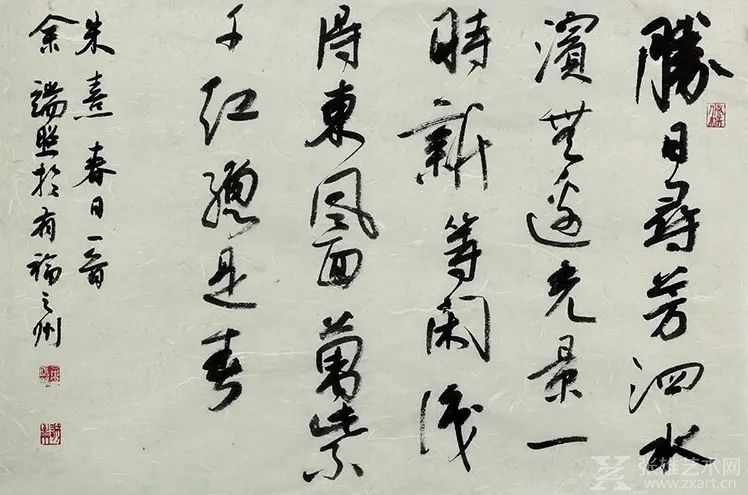 勝日尋芳泗水
濱無邊光景一
時新等閑識
得東風面萬紫
千红總是春
朱熹春日一首
余端照於有福之州
张雄艺术网
www.zxart.cn